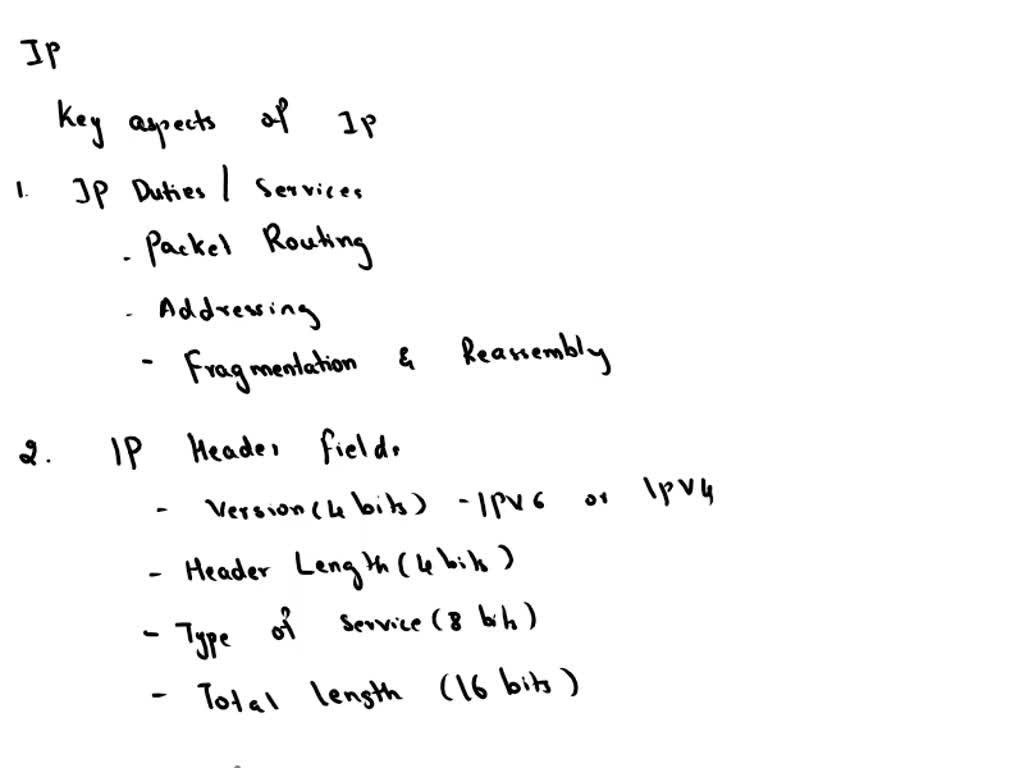 IP
Key aspects of IP
1. IP Duties | Services
- Packet Routing
- Addressing
- Fragmentation & Reassembly
2. IP Header fields
- Version (4 bits) - IPV6 or IPV4
- Header Length (4 bits)
- Type of Service (8 bits)
- Total length (16 bits)